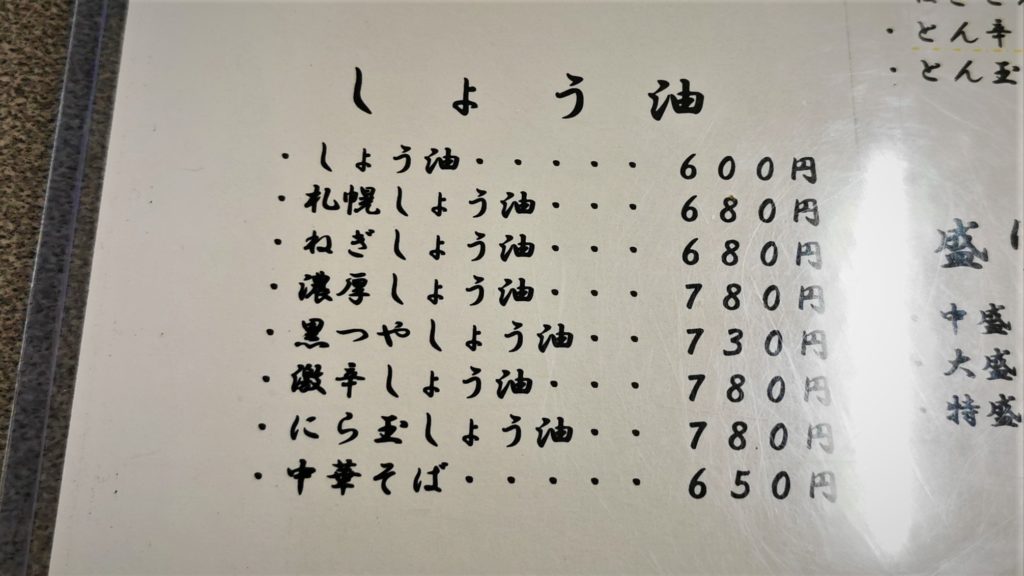 しょう油
・しょう油・・・・・600円
・札幌しょう油・・・680円
・ねぎしょう油・・・680円
・濃厚しょう油・・・780円
・黒つやしょう油・・730円
・激辛しょう油・・・780円
・にら玉しょう油・・780円
・中華そば・・・・・650円
・とん辛
・とん玉
盛
・中盛
・大盛
・特盛